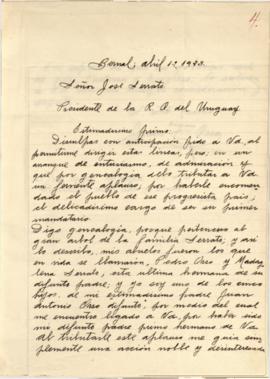 4.
Bernal, abril 1º 1923.
Señor José Serrato
Presidente de la R. O. del Uruguay
Estimadísimo primo:
Disculpas con anticipación pido a Vd, al
permitirme dirigir estas líneas, pero, en un
arranque de entusiasmo, de admiración y
que por genealogía debo tributar a Vd
un ferviente aplauso, por haberle encomen
dado el pueblo de ese progresista país,
el delicadísimo cargo de ser su primer
mandatario.
Digo genealogía, porque pertenezco al
gran árbol de la familia Serrato, y así
lo describo, mis abuelos fueron los que
en vida se llamaron, Pedro y Magda
lena Serrato, esta última hermana de su
difunto padre; y yo soy uno de los cinco
hijos, de mi estimadísimo padre Juan
Antonio difunto, por medio del cual
me encuentro ligado a Vd, por haber sido
mi difunto padre primo hermano de Vd.
Al tributarle este aplauso me guía sim
plemente una acción noble y desinteresada